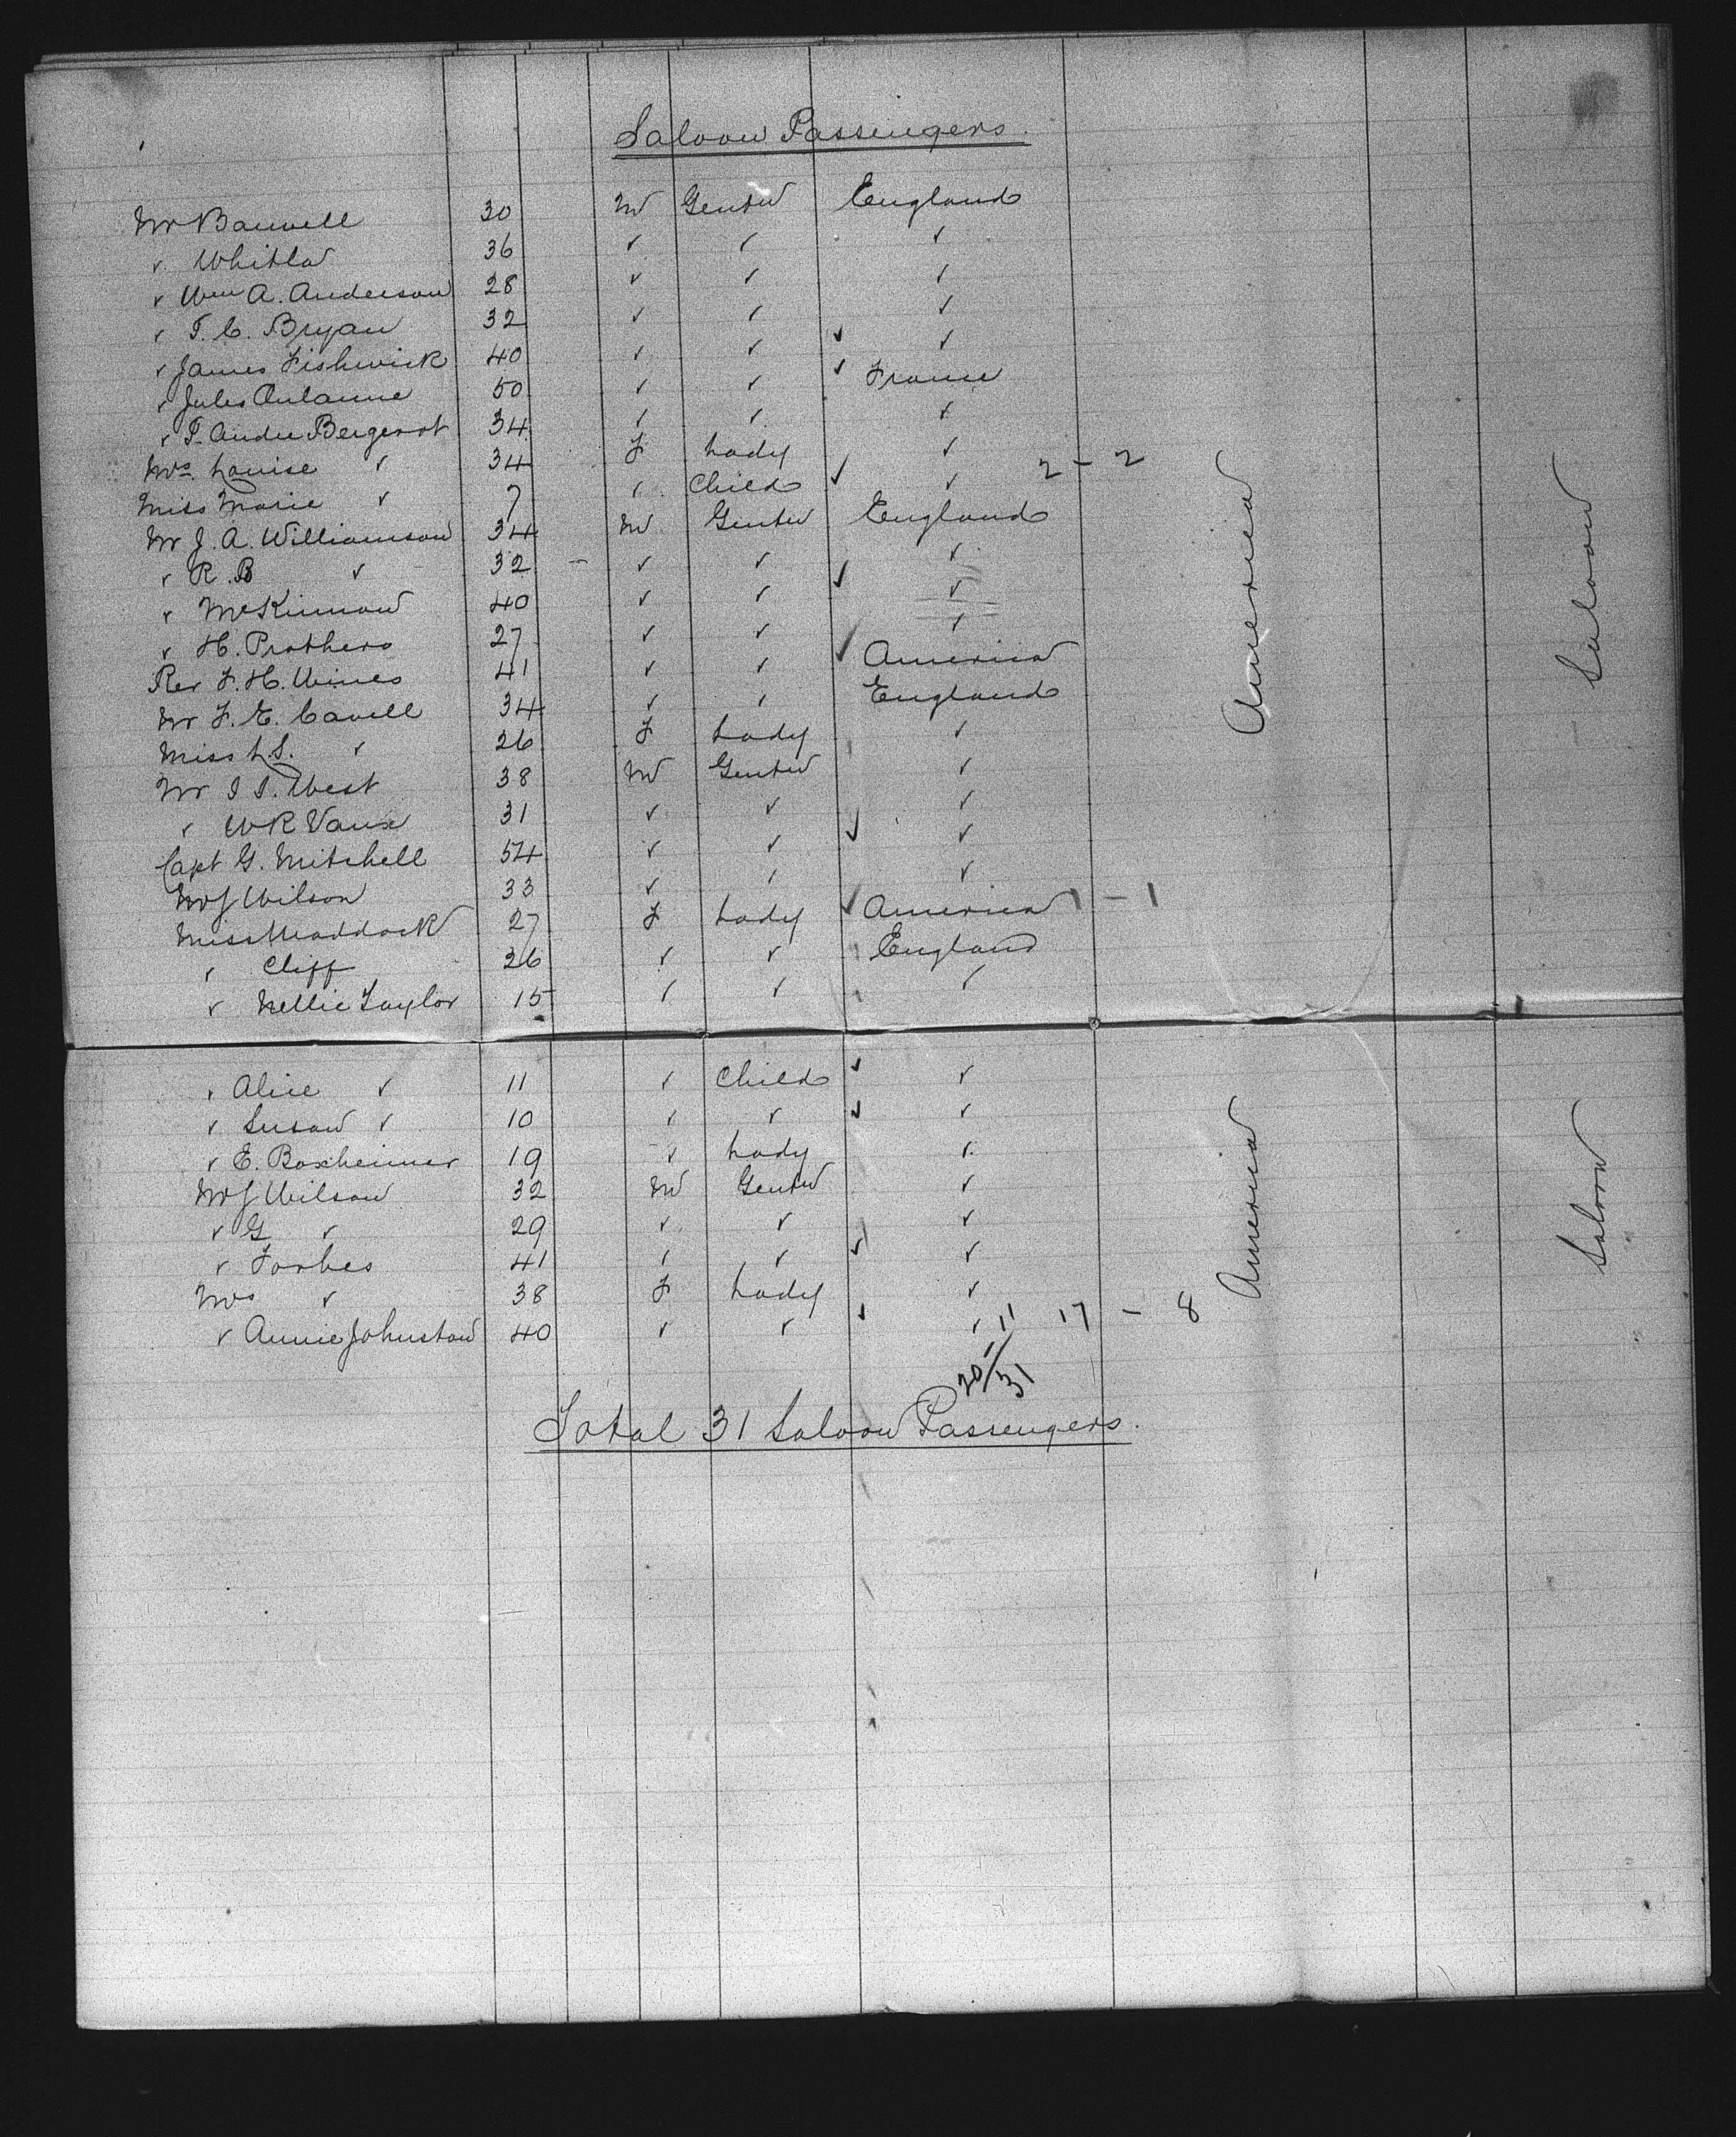 Saloon Passengers.
Mr Banwell 30 M Gentn England
" Whitla 36 " " "
" Wm A. Anderson 28 " " "
" T. C. Bryan 32 " " "
" James Fishwick 40 " " "
" Jules 50 " " France
" T. Andre Bergerot 34 " " "
Mrs. Louise " 34 F Lady "
Miss Marie " 7 " Child " 2 - 2
Mr J. A. Williamson 34 M Gentn England
" R. B " 32 - " " "
" McKinnon 40 " " "
" H. Prothero 27 " " "
Rev F. H. Wines 41 " " America
Mr F. E. Cavell 34 " " England
Miss L.S. " 26 F Lady "
Mr I I. West 38 M Gentn "
" W R Vaux 31 " " "
Capt G. Mitchell 54 " " "
Mr J Wilson 33 " " "
Miss Maddock 27 F Lady America 1 - 1
" Cliff 26 " " England
" Nellie Taylor 15 " " "
America
Saloon
" Alice " 11 " Child "
" Susan " 10 " " "
" E. Boxheimer 19 " Lady "
Mr J Wilson 32 M Gentn "
" G " 29 " " "
" Forbes 41 " " "
Mrs " 38 F Lady "
" Annie Johnston 40 " " " 11 17 - 8
America
Saloon
20/31
Total 31 Saloon Passengers.